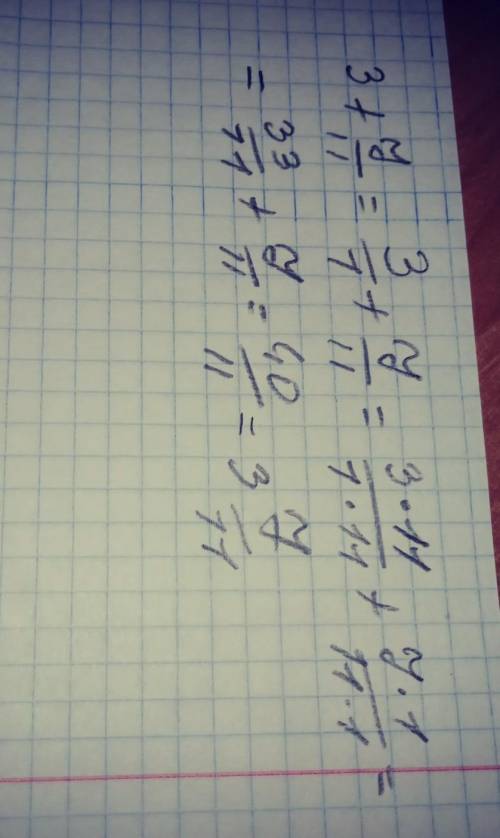 3 + 7/11 = 3/1 + 7/11 = 3·11/1·11 + 7·1/11·1 =
= 33/11 + 7/11 = 40/11 = 3 7/11